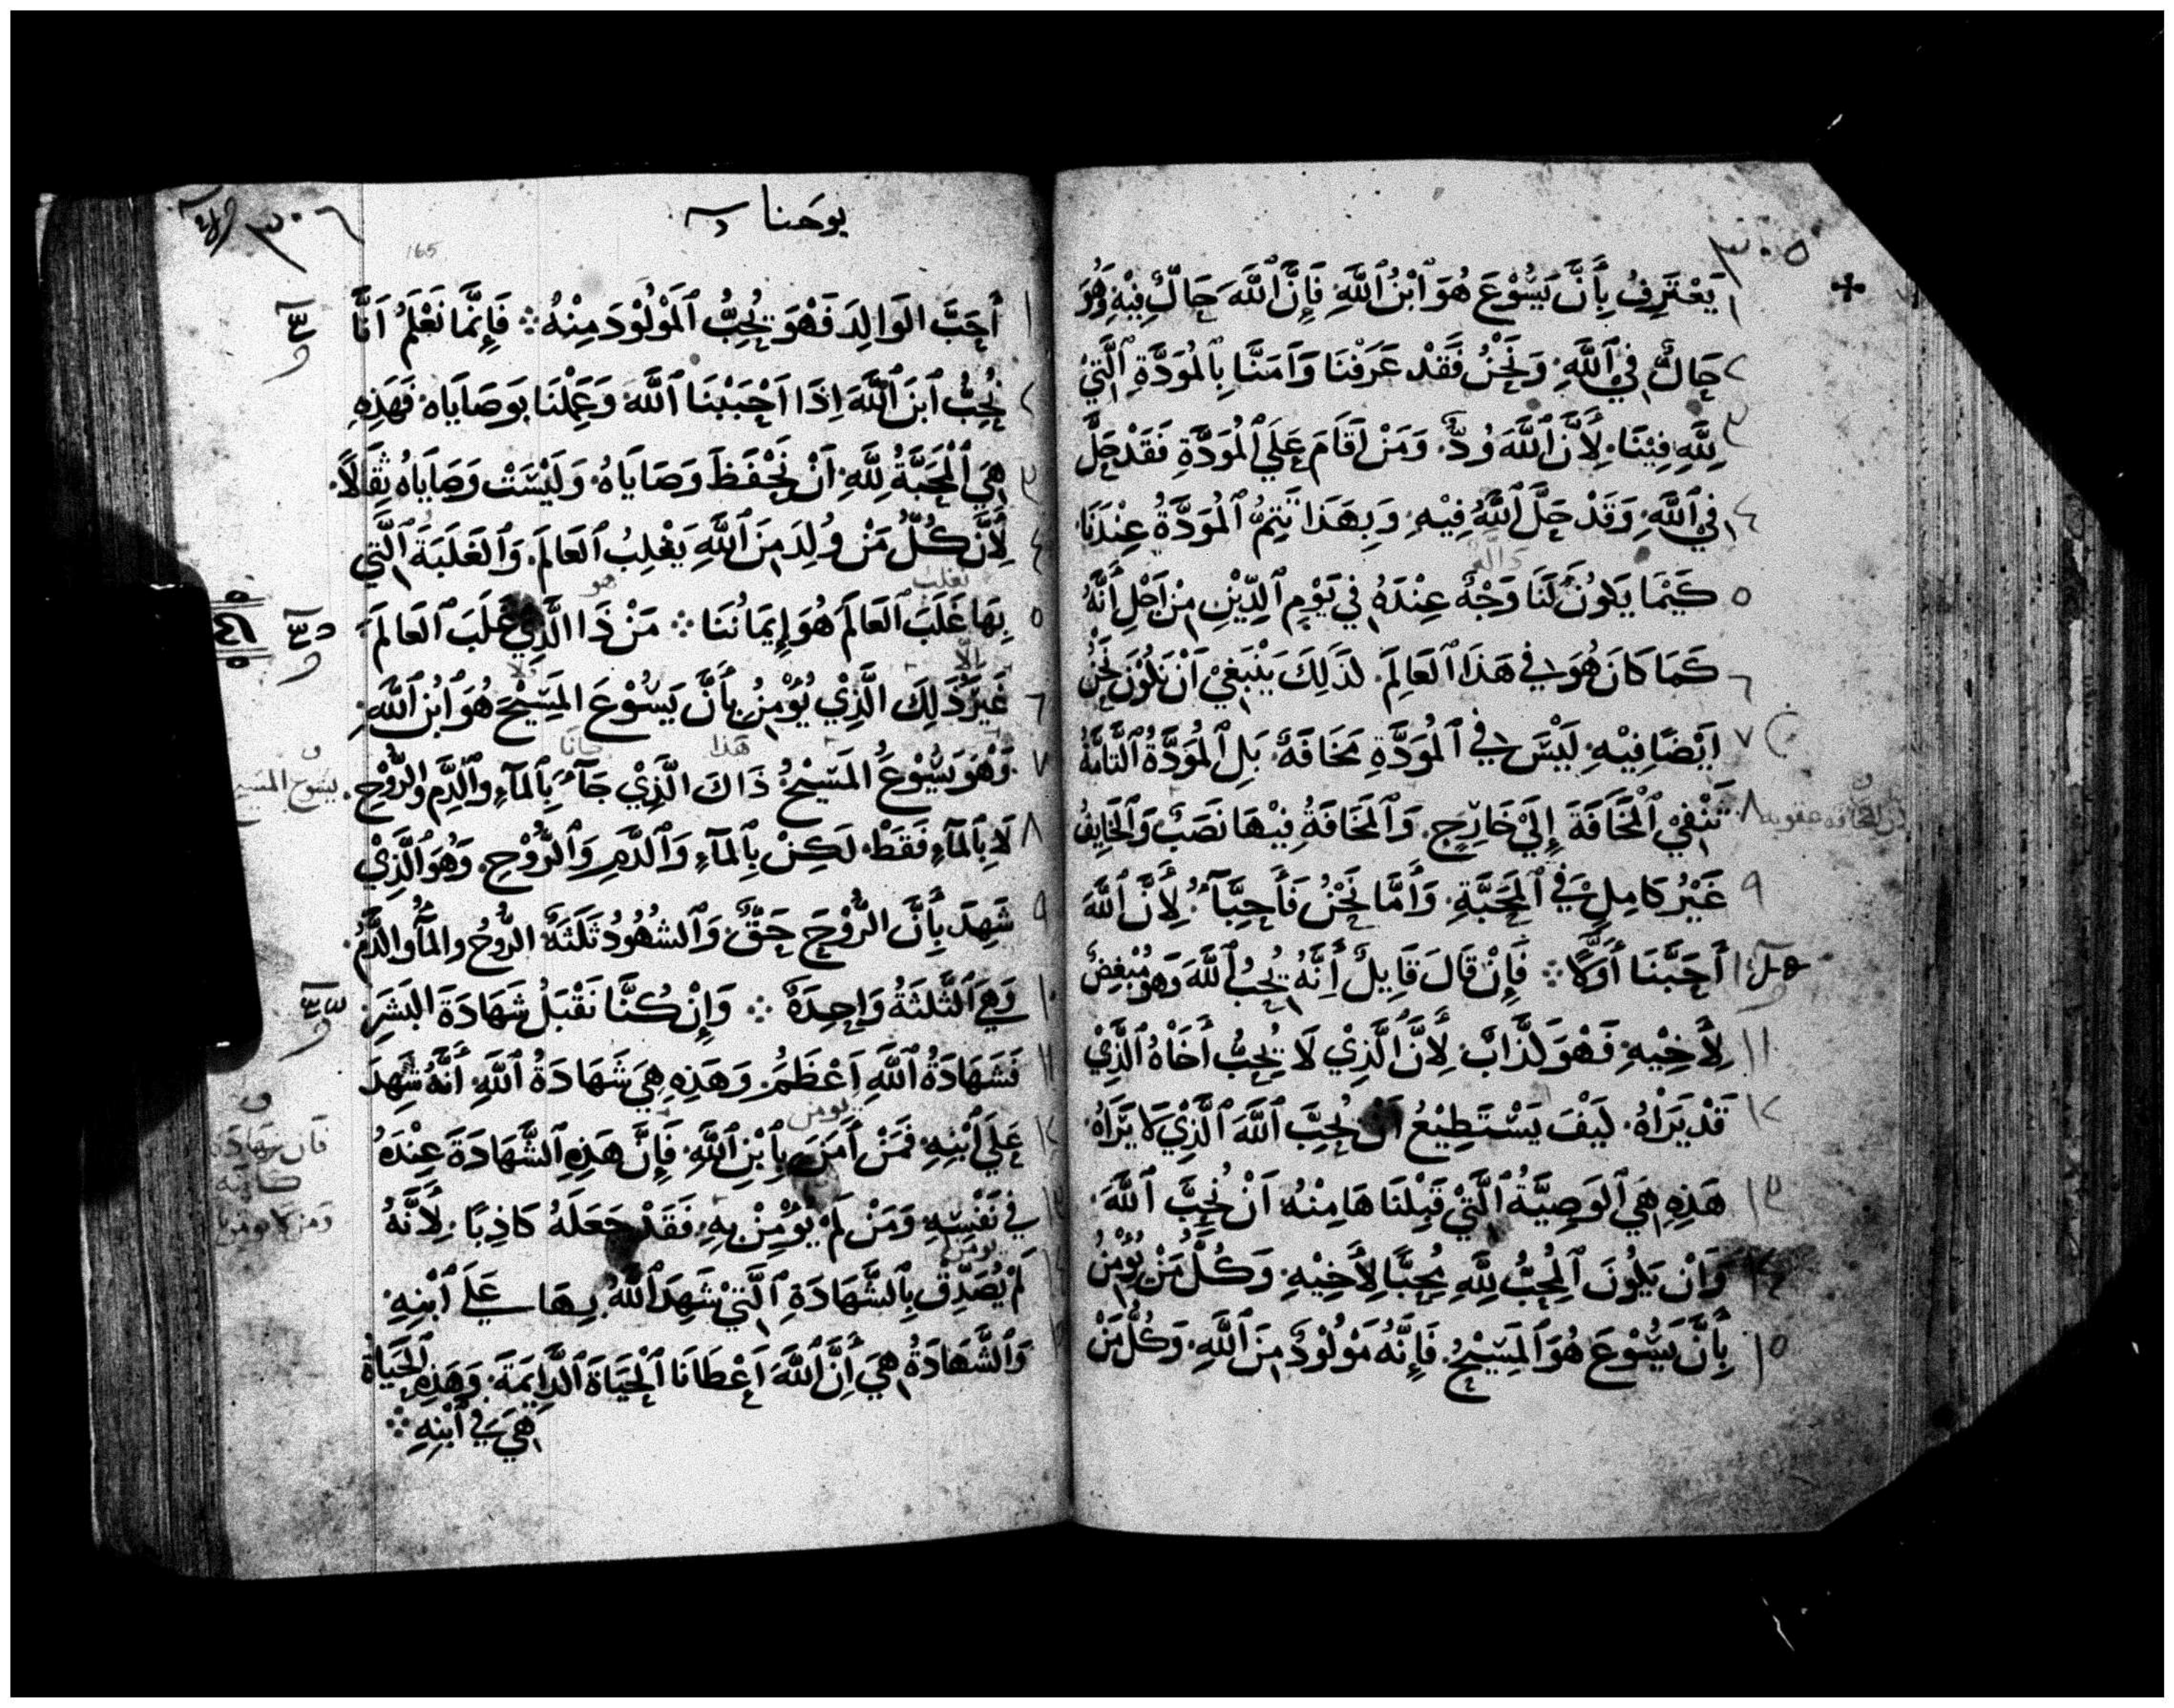 ٣٠٥
١ يَعْتَرِفُ بِأَنَّ يَسُوْعَ هُوَ ٱبْنُ ٱللَّهِ. فَإِنَّ ٱللَّهَ حَالٌّ فِيْهِ وَهُوَ
٢ حَالٌّ فِي ٱللَّهِ. وَنَحْنُ فَقَدْ عَرَفْنَا وَآمَنَّا بِٱلمُوَدَّةِ ٱلَّتِيْ
٣ لِلَّهِ فِيْنَا. لِأَنَّ ٱللَّهَ وُدٌّ. وَمَنْ اَقَامَ عَلَي ٱلْمُوَدَّةِ فَقَدْ حَلَّ
٤ فِي ٱللَّهِ. وَقَدْ حَلَّ ٱللَّهُ فِيْهِ. وَبِهَذَا تَتِمُّ ٱلمُوَدَّةُ عِنْدَنَا.
٥ كَيْمَا يَكُونُ لَنَا وَجْهٌ عِنْدَهُ فِي يَوْمِ ٱلدِّيْنِ مِنْ اَجْلِ أَنَّهُ
٦ كَمَا كَانَ هُوَ فِي هَذَا ٱلعَالَمِ. كَذَلِكَ يَنْبَغِيْ اَنْ نَكُوْنَ نَحْنُ
٧ اَيْضًا فِيْهِ. لَيْسَ فِي ٱلمُوَدَّةِ مَخَافَةٌ. بَلِ ٱلمُوَدَّةُ ٱلتَّامَّةُ
٨ تَنْفِيْ ٱلْمَخَافَةَ إِلَيْ خَارِجٍ. وَٱلمَخَافَةُ فِيْهَا نَصَبٌ وَٱلخَايِفُ
٩ غَيْرُ كَامِلٍ فِي ٱلمَحَبَّةِ. وَأَمَّا نَحْنُ فَأَحِبَّآءُ. لِأَنَّ ٱللَّهَ
أَحَبَّنَا أَوَّلًا ⁘ فَإِنْ قَالَ قَايِلٌ أَنَّهُ يُحِبُّ ٱللَّهَ وَهُوَ مُبْغِضٌ
١١ لِأَخِيْهِ. فَهْوَ كَذَّابٌ. لِأَنَّ ٱلَّذِيْ لَا يُحِبُّ أَخَاهُ ٱلَّذِيْ
١٢ قَدْ يَرَاهُ. كَيْفَ يَسْتَطِيْعُ اَنْ يُحِبَّ ٱللَّهَ ٱلَّذِيْ لَا يَرَاهُ.
١٣ هَذِهِ هِيَ ٱلوَصِيَّةُ ٱلَّتِيْ قَبِلْنَاهَا مِنْهُ اَنْ نُحِبَّ ٱللَّهَ.
١٤ وَاَنْ يَكُونَ ٱلْمُحِبُّ لِلَّهِ مُحِبًّا لِأَخِيْهِ. وَكُلُّ مَنْ يُؤْمِنُ
١٥ بِأَنَّ يَسُوْعَ هُوَ ٱلمَسِيْحُ. فَإِنَّهُ مَوْلُوْدٌ مِنَ ٱللَّهِ. وَكُلُّ مَنْ
يوحنا
٣٠٦
165
١ أَحَبَّ الوَالِدَ فَهْوَ يُحِبُّ ٱلمَوْلُوْدَ مِنْهُ ⁘ فَإِنَّمَا نَعْلَمُ اَنَّا
٢ نُحِبُّ ٱبْنَ ٱللَّهِ اِذَا اَحْبَبْنَا ٱللَّهَ وَعَمِلْنَا بِوَصَايَاه. فَهَذِهِ
٣ هِيَ ٱلْمَحَبَّةُ لِلَّهِ. اَنْ نَحْفَظَ وَصَايَاهُ. وَلَيْسَتْ وَصَايَاهُ ثِقَالًا.
٤ لِأَنَّ كُلَّ مَنْ وُلِدَ مِنَ ٱللَّهِ يَغْلِبُ ٱلعَالَمَ. وَٱلغَلَبَةُ ٱلَّتِي
يغلب هو
٥ بِهَا غَلَبَ ٱلعَالَمَ هُوَ إِيمَانُنَا ⁘ مَنْ ذَا الَّذِيْ غَلَبَ ٱلعَالَمَ
٦ غَيْرَ ذَلِكَ الَّذِيْ يُؤْمِنُ بِأَنَّ يَسُوْعَ المَسِيْحَ هُوَ ٱبْنُ ٱللَّهِ.
هذا
٧ وَهْوَ يَسُوْعُ المَسِيْحُ ذَاكَ الَّذِيْ جَآءَ بِٱلمَآءِ وٱلدَّمِ وٱلرُّوْحِ.
٨ لَا بِٱلمَآءِ فَقَطْ. لَكِنْ بِٱلمَآءِ وَٱلدَّمِ وَٱلرُّوْحِ. وَهُوَ ٱلَّذِيْ
٩ شَهِدَ بِأَنَّ الرُّوْحَ حَقٌّ. وَٱلشُهُوْدُ ثَلَثَةٌ. الرُّوحُ والمَآءُ والدَّمُ.
١٠ وَهِيَ ٱلثَّلثَةُ وَاحِدَةٌ ⁘ وَإِنْ كُنَّا نَقْبَلُ شَهَادَةَ البَشَرِ
١١ فَشَهَادَةُ ٱللَّهِ اَعْظَمُ. وَهَذِهِ هِيَ شَهَادَةُ ٱللَّهِ. أَنَّهُ شَهِدَ
يومن
١٢ عَلَي ٱبْنِهِ. فَمَنْ آمَنَ بِٱبْنِ ٱللَّهِ. فَإِنَّ هَذِهِ ٱلشَّهَادَةَ عِنْدَهُ
فِي نَفْسِهِ. وَمَنْ لَمْ يُؤْمِنْ بِهِ. فَقَدْ جَعَلَهُ كَاذِبًا. لِأَنَّهُ
لَمْ يُصَدِّقْ بِٱلشَّهَادَةِ ٱلَّتِيْ شَهِدَ ٱللَّهُ بِهَا عَلَي ٱبْنِهِ.
وَٱلشَّهَادَةُ هِيَ أَنَّ ٱللَّهَ اَعْطَانَا ٱلْحَيَاةَ ٱلدَّايِمَةَ. وَهَذِهِ ٱلحَيَاةُ
هِيَ فِي ٱبْنِهِ ⁘